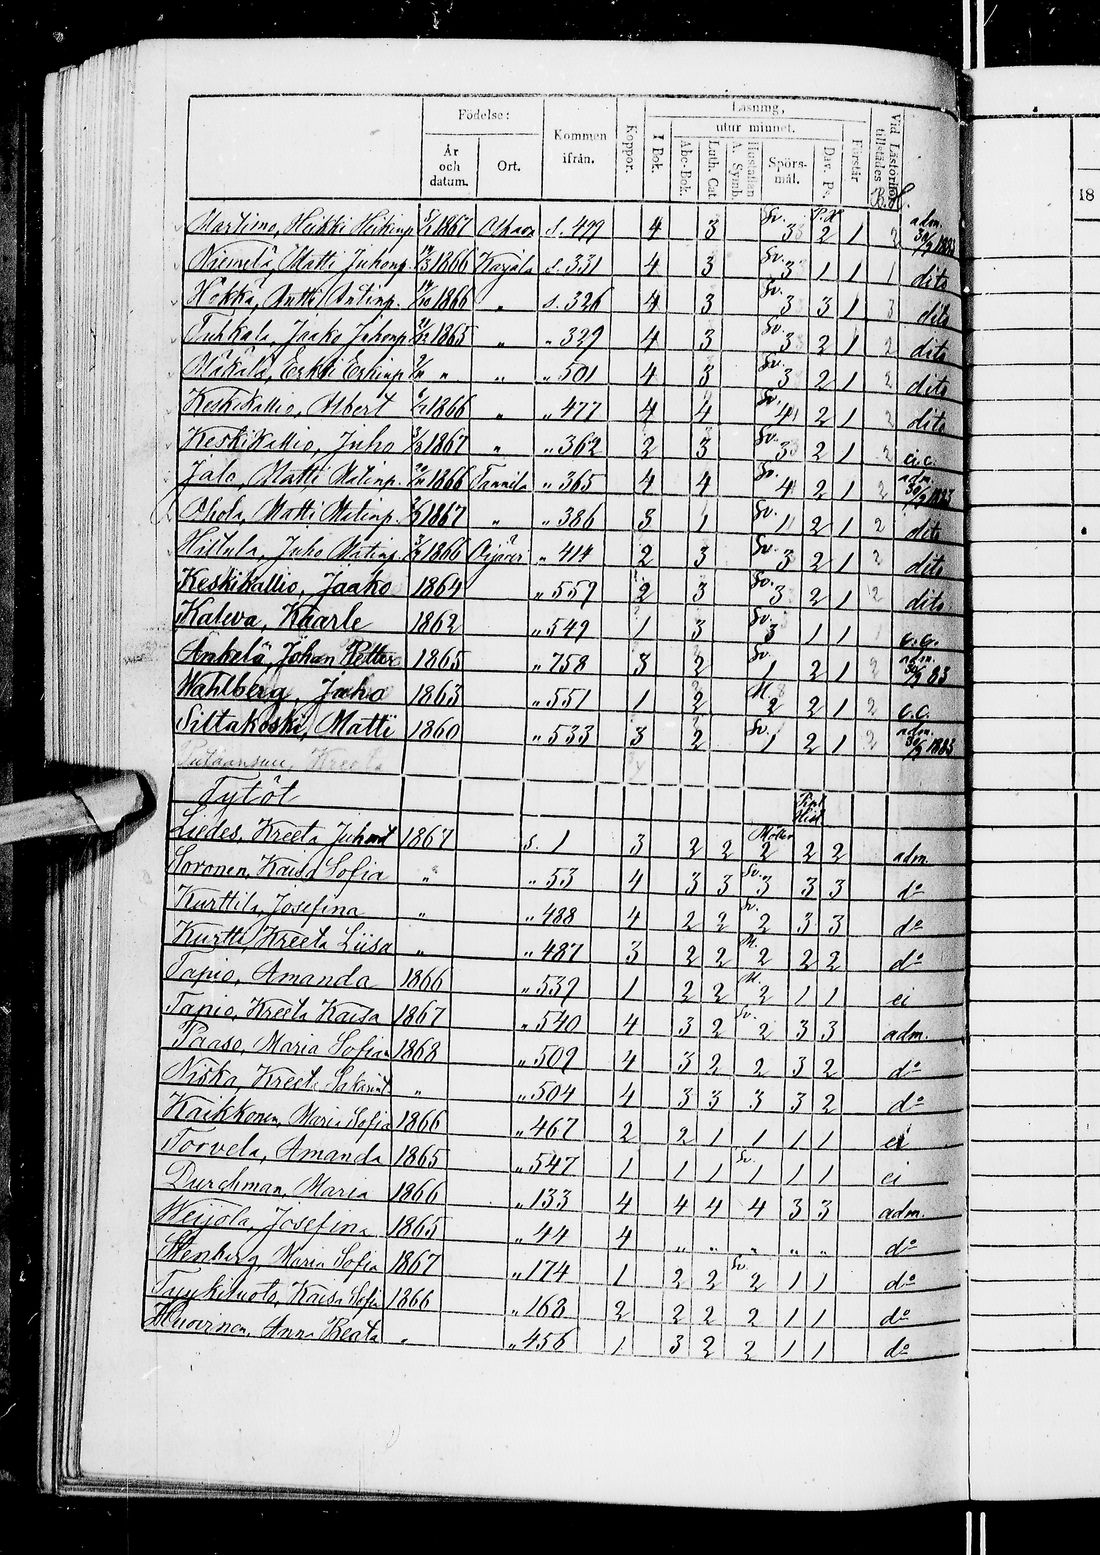 Födelse: Kommen ifrån. Koppor. Läsning, Vid Läsförhör tillstädes
År och datum. Ort. I Bok. utur minnet. Förstår B.H. 18
Abc-Bok. Luth. Cat. Hustaflan A. Symb. Spörs-mål. Dav. Ps.
Martimo, Heikki Heikinp. 1867 s. 499 4 3 Sv. 3 2 1 2 adm. 30/9 1883
Niemelä, Matti Juhonp. 1866 Karjala s. 331 4 3 Sv. 3 1 1 1 dito
Hökkä, Antti Antinp. 1866 „ s. 326 4 3 Sv. 3 3 1 3 dito
Tuhkala, Jaako Juhonp. 1865 „ „ 329 4 3 Sv. 3 2 1 2 dito
Mäkälä, Erkki Erkinp. „ „ „ 501 4 3 Sv. 3 2 1 2 dito
Keskikallio, Albert 1866 „ „ 477 4 4 Sv. 4 2 1 2 dito
Keskikallio, Juho 1867 „ „ 362 2 3 Sv. 3 2 1 2 ei.c.
Jalo, Matti Matinp. 1866 Tannila „ 365 4 4 Sv. 4 2 1 2 adm. 30/9 1883
Ohola, Matti Matinp. 1867 „ „ 386 3 1 Sv. 1 2 1 2 dito
Hiltula, Juho Matinp. 1866 „ 414 2 3 Sv. 3 2 1 2 dito
Keskikallio, Jaako 1864 „ 559 2 3 Sv. 3 2 1 2 dito
Kaleva, Kaarle 1862 „ 549 1 3 Sv. 3 1 1 e.c.
Ankelä, Johan Petter 1865 „ 758 3 2 Sv 1 2 1 2 adm. 30/9 83
Wahlberg, Juho 1863 „ 551 1 2 M. 2 2 1 2 e.c.
Siltakoski, Matti 1860 „ 533 3 2 Sv. 1 2 1 2 adm. 30/9 1883
Kreeta
Tytöt
Liedes, Kreeta Juhont 1867 s. 1 3 2 2 Möller 2 2 2 adm.
Soronen, Kaisa Sofia „ „ 53 4 3 3 Sv. 3 3 3 do
Kurttila, Josefina „ „ 488 4 2 2 Sv. 2 3 3 do
Kurtti, Kreeta Liisa „ „ 487 3 2 2 M. 2 2 2 do
Tapio, Amanda 1866 „ 539 1 2 2 M. 2 1 1 ei
Tapio, Kreeta Kaisa 1867 „ 540 4 3 2 Sv. 2 3 3 adm.
Paaso, Maria Sofia 1868 „ 509 4 3 2 2 3 2 do
Niska, Kreeta „ „ 504 4 3 3 3 3 2 do
Kaikkonen, Maria Sofia 1866 „ 467 2 2 1 1 1 1 ei
Torvela, Amanda 1865 „ 547 1 1 1 Sv. 1 1 1 ei
Durchman, Maria 1866 „ 133 4 4 4 4 3 3 adm.
Weijola, Josefina 1865 „ 44 4 „ „ „ „ „ do
Stenberg, Maria Sofia 1867 „ 174 1 2 2 Sv. 2 1 1 do
Tyykiluoto, Kaisa Sofia 1866 „ 168 2 2 2 2 1 1 do
Huovinen, Anna Beata „ „ 456 1 3 2 2 1 1 do